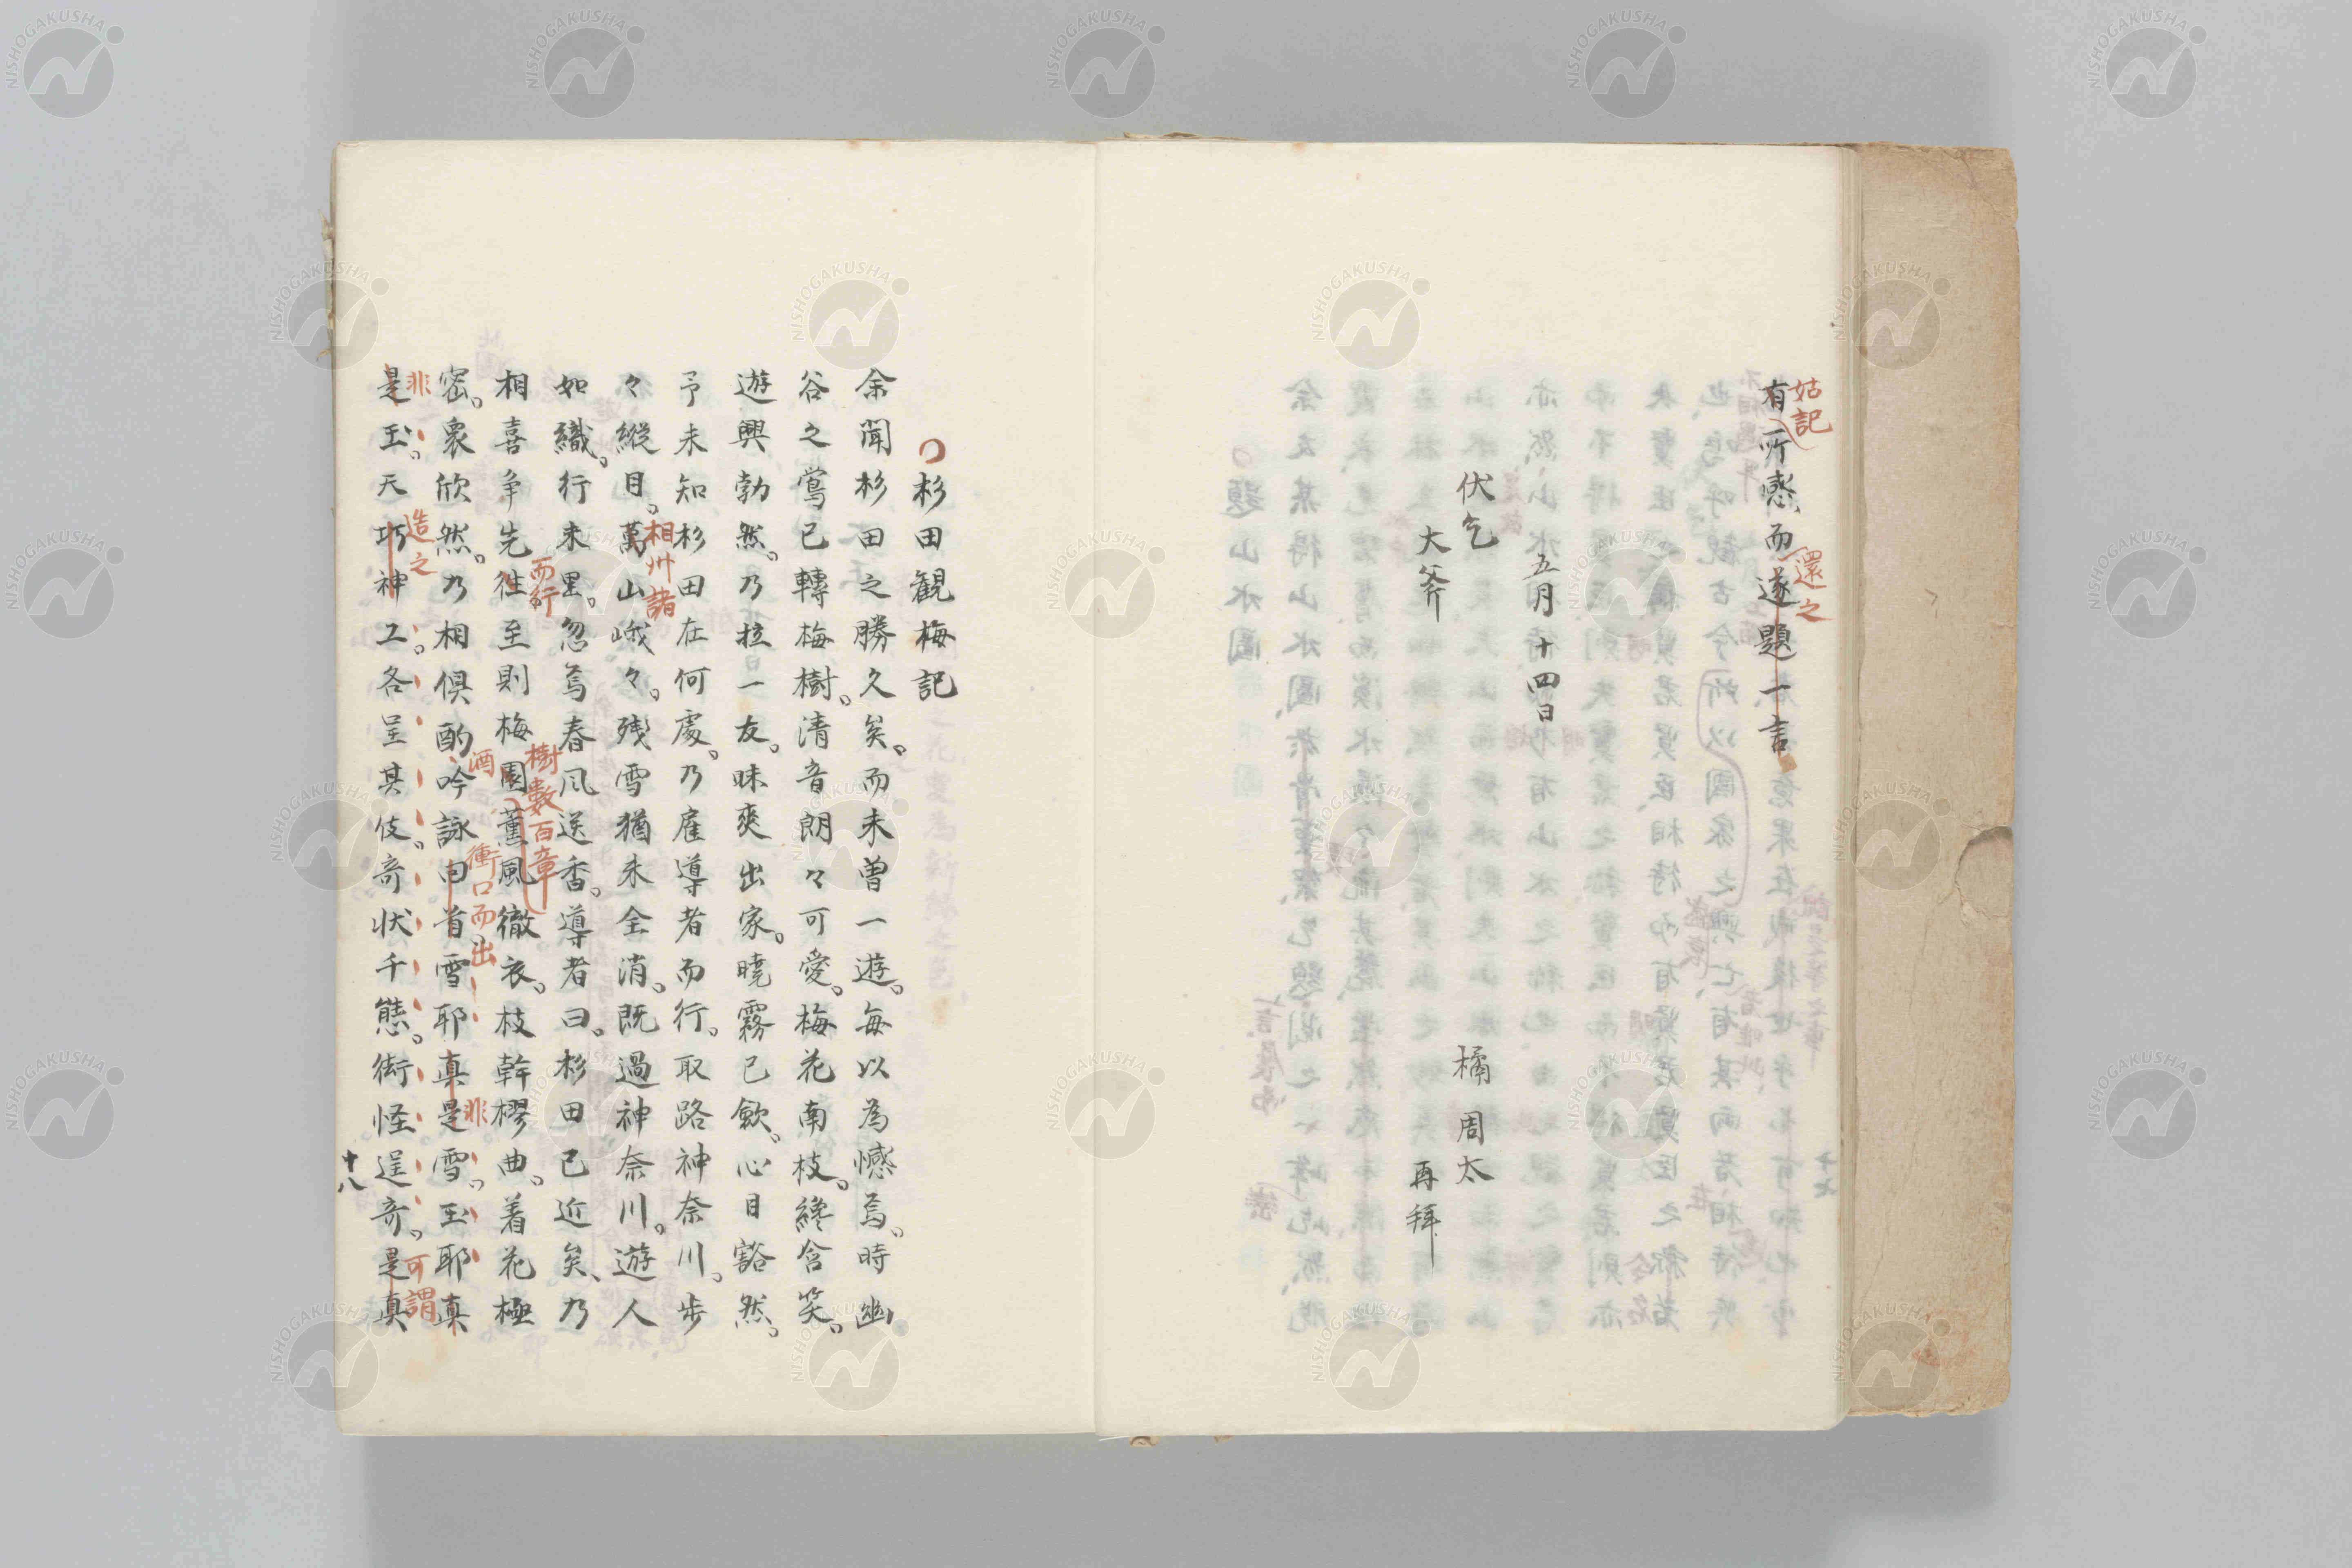 有所感、而遂題一言
姑記
還之
五月十四日
伏乞
大斧
橘周太
再拜
杉田観梅記
余聞杉田之勝久矣。而未曽一遊。毎以為憾焉。時幽
谷之鶯已轉梅樹。清音朗々可愛。梅花南枝。纔含笑。
遊興勃然。乃拉一友。昧爽出家。曉霧已歛。心目豁然。
予未知杉田在何處。乃雇導者而行。取路神奈川。歩
々縱目。萬山峨々。残雪猶未全消。既過神奈川。遊人
相州諸
如織。行未里。忽焉春風送香。導者曰。杉田已近矣、乃
相喜争先徃至則梅園薫風徹衣。枝幹樛曲。着花極
而行
樹數百章
密。衆欣然。乃相倶酌吟詠曰首雪耶真是雪。玉耶真
酒
衝口而出
非
是玉。天巧神工各呈其伎。奇状千態。衒怪逞奇。是真
非
造之
可謂
十八